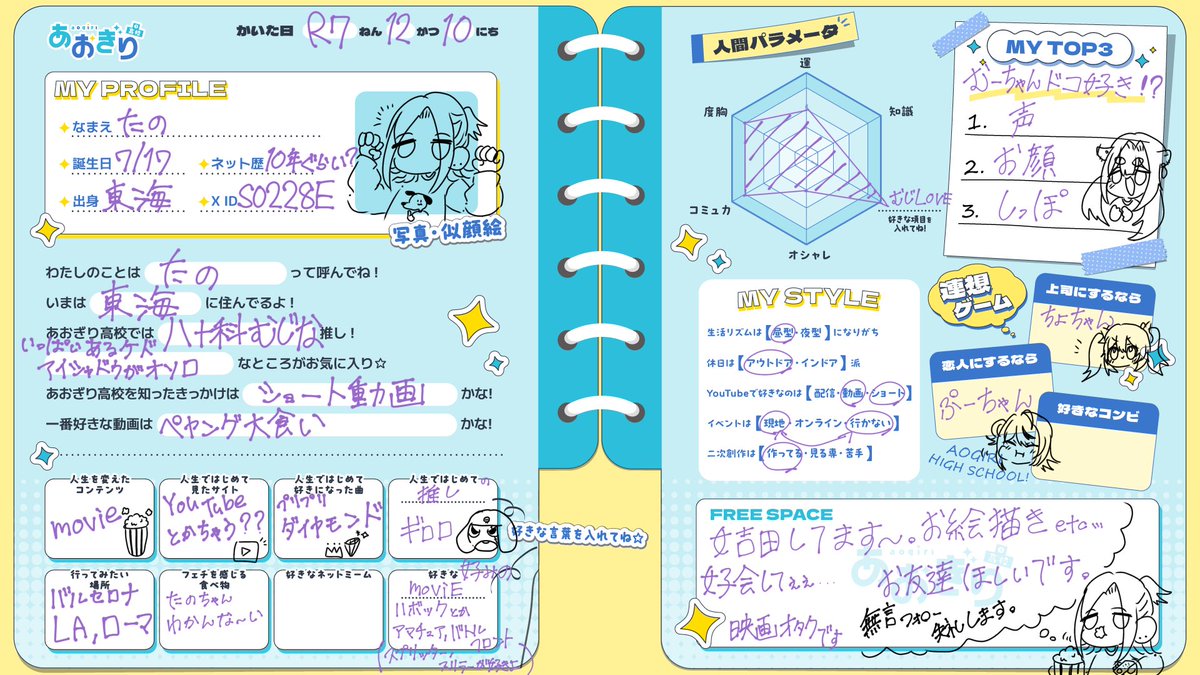 あおぎり高校
aogiri
かいた日 R7 ねん 12 がつ 10 にち
MY PROFILE
なまえ たの
誕生日 7/17
ネット歴 10年ぐらい?
出身 東海
X ID S0228E
写真・似顔絵
わたしのことは たの って呼んでね!
いまは 東海 に住んでるよ!
あおぎり高校では 八十科むじな 推し!
いっぱいあるケド
アイシャドウがオソロ なところがお気に入り☆
あおぎり高校を知ったきっかけは ショート動画 かな!
一番好きな動画は ペヤング大食い かな!
人生を変えた
コンテンツ
movie
人生ではじめて
見たサイト
YouTube
とかちゃう??
人生ではじめて
好きになった曲
プリプリ
ダイヤモンド
人生ではじめての
推し
ギロロ
好きな言葉を入れてね☆
行ってみたい
場所
バルセロナ
LA,ローマ
フェチを感じる
食べ物
たのちゃん
わかんな〜い
好きなネットミーム
好きな
movie
リボックとか
アマチュア,バトル
フロント
(スプリッター,
スリラーが好きよ)
人間パラメータ
運
知識
むじLOVE
好きな項目を
入れてね!
オシャレ
コミュ力
度胸
MY TOP3
むーちゃんドコ好き!?
1. 声
2. お顔
3. しっぽ
MY STYLE
生活リズムは【昼型・夜型】になりがち
休日は【アウトドア・インドア】派
YouTubeで好きなのは【配信・動画・ショート】
イベントは【現地・オンライン・行かない】
二次創作は【作ってる・見る専・苦手】
連想
ゲーム
上司にするなら
ちょちゃん
恋人にするなら
ぷーちゃん
好きなコンビ
AOGIRI
HIGH SCHOOL!
FREE SPACE
妨田してます〜。お絵描きetc…
好会してぇぇ… お友達ほしいです。
映画オタクです
無言フォロー
失礼します。